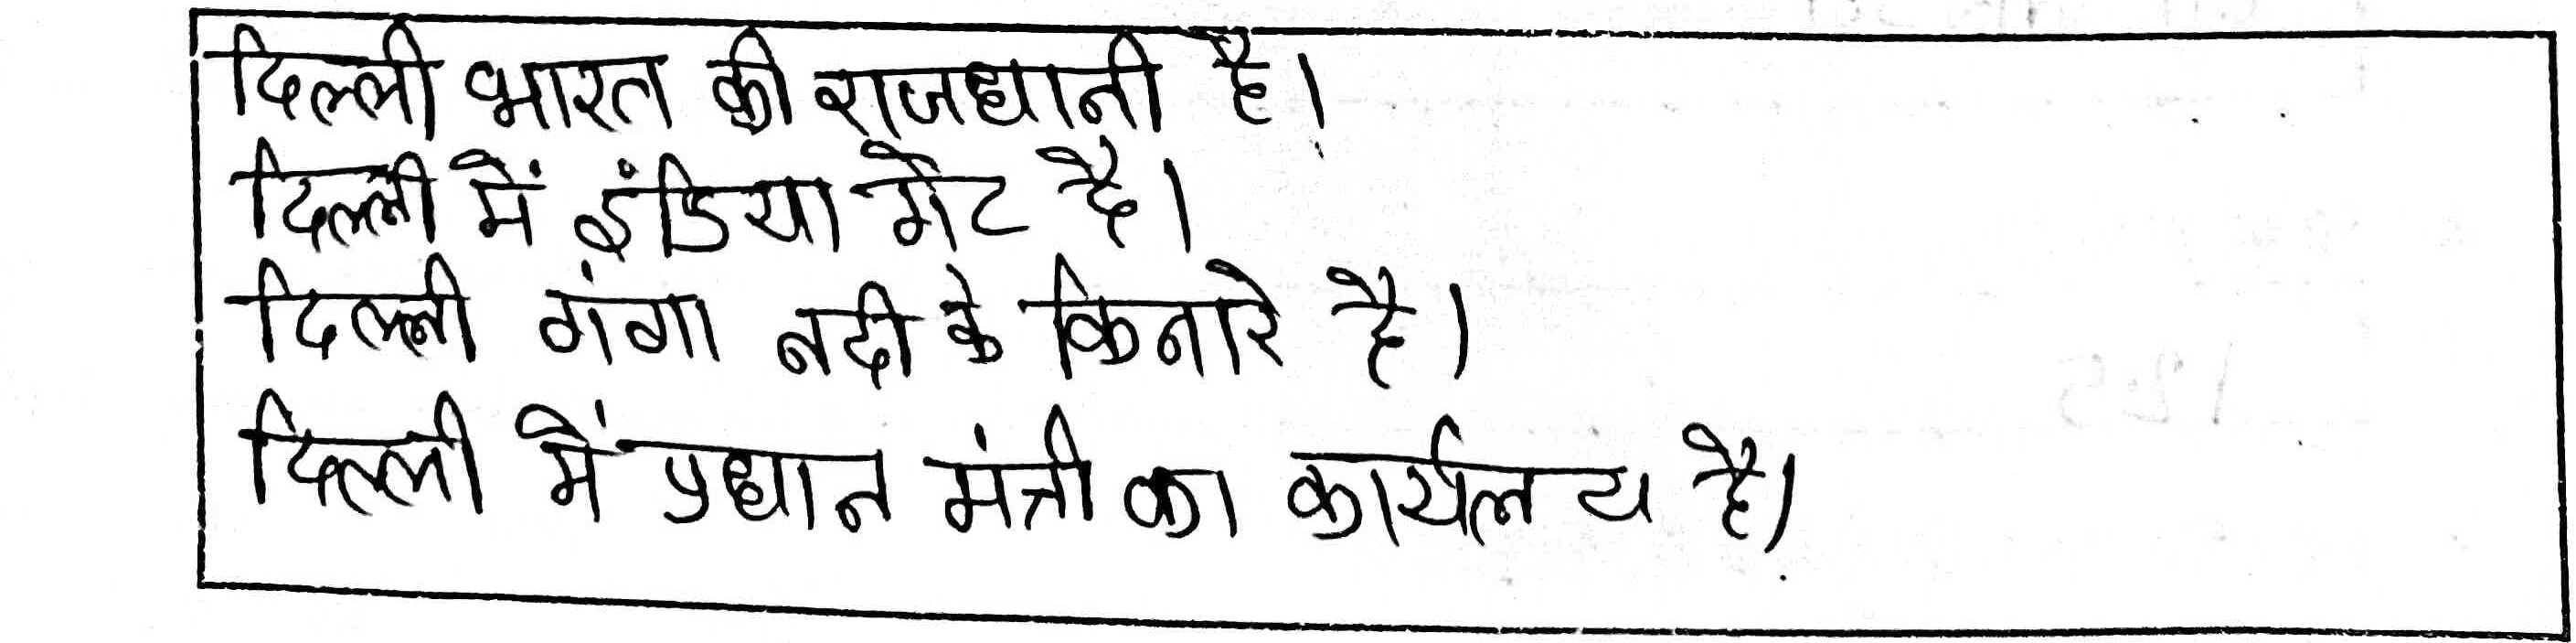 दिल्ली भारत की राजधानी है।
दिल्ली में इंडिया गेट है।
दिल्ली गंगा नदी के किनारे है।
दिल्ली में प्रधान मंत्री का कार्यलय है।